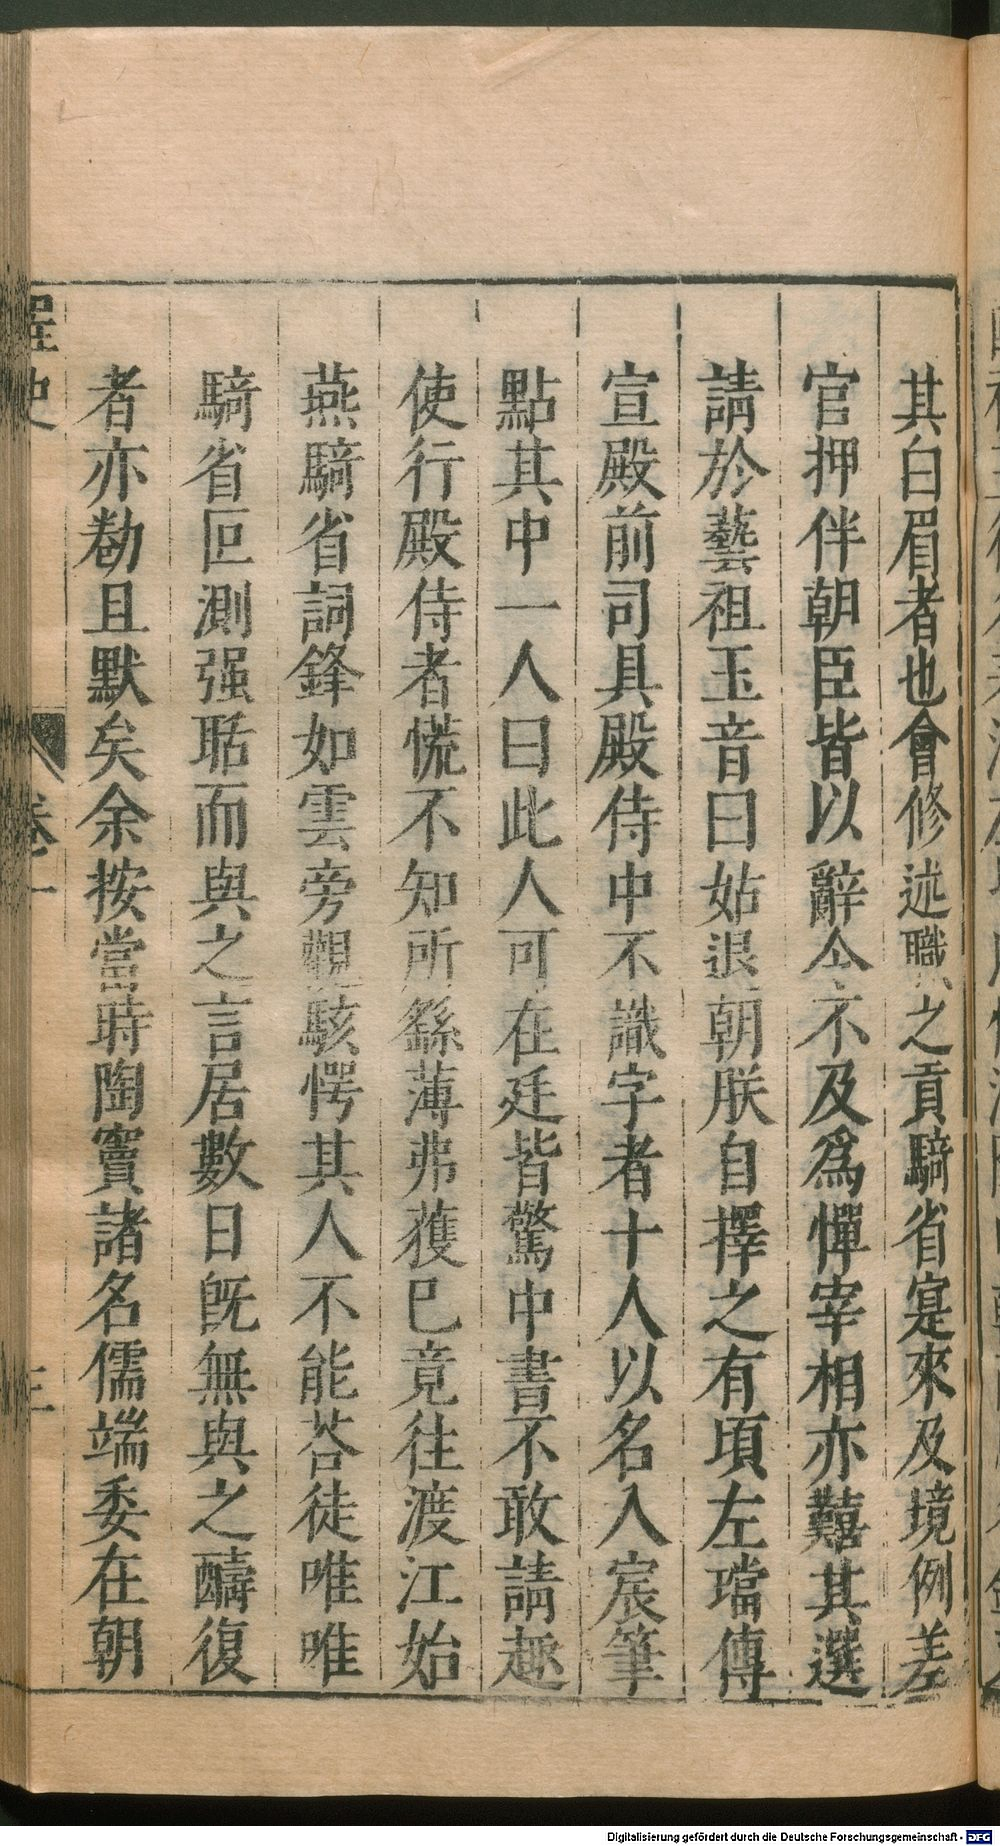 其白眉者也會修述職之貢騎省寔來及境例差
官押伴朝臣皆以辭令不及爲憚宰相亦囏其選
請於藝祖玉音曰姑退朝朕自擇之有頃左璫傳
宣殿前司具殿侍中不識字者十人以名入宸筆
點其中一人曰此人可在廷皆驚中書不敢請趣
使行殿侍者慌不知所繇薄弗獲已竟往渡江始
燕騎省詞鋒如雲旁觀駭愕其人不能荅徒唯唯
騎省叵測强聒而與之言居數日旣無與之醻復
者亦勌且默矣余按當時陶竇諸名儒端委在朝
桯史
卷一
三
Digitalisierung gefördert durch die Deutsche Forschungsgemeinschaft - DFG